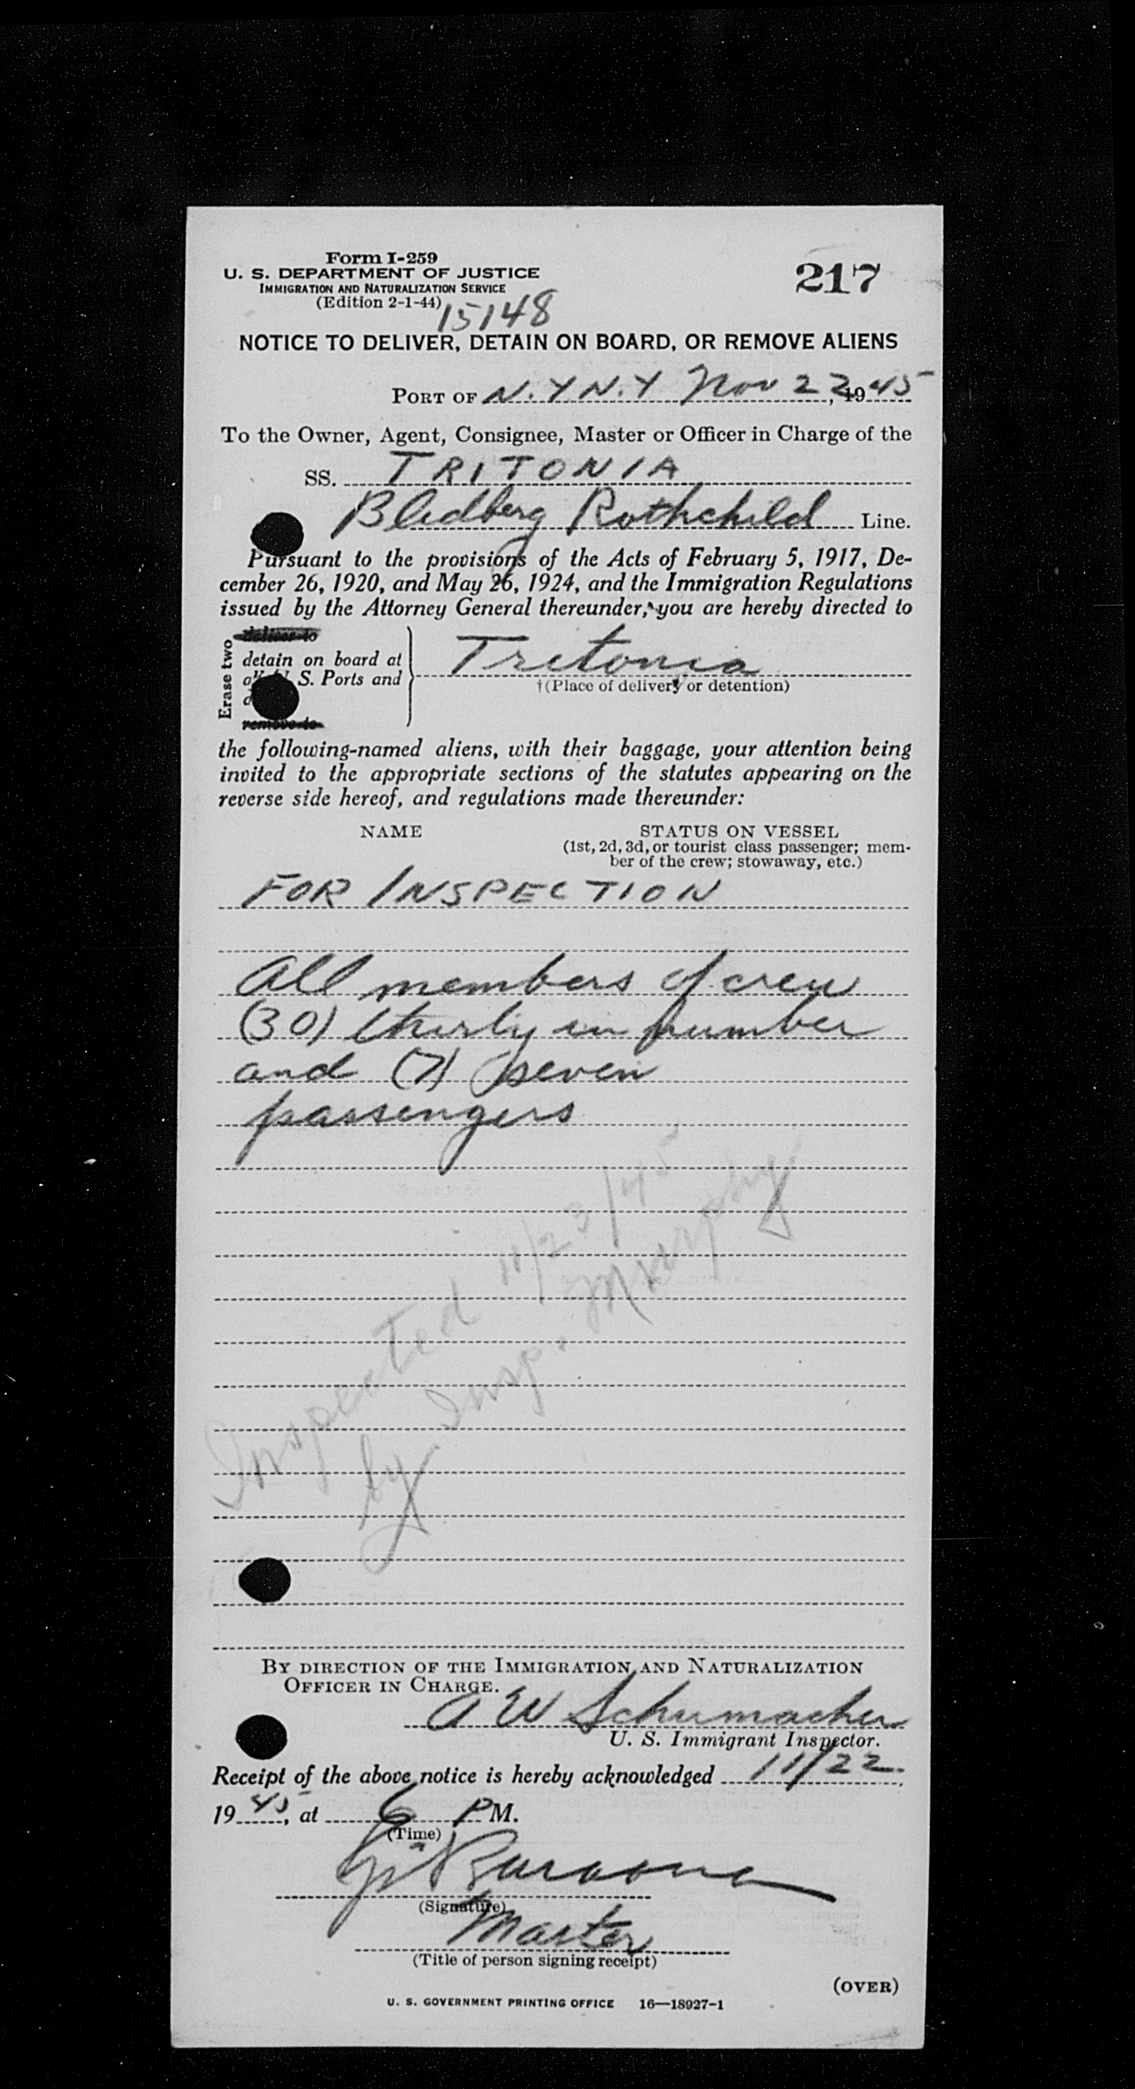 Form I-259
217
U. S. DEPARTMENT OF JUSTICE
IMMIGRATION AND NATURALIZATION SERVICE
(Edition 2-1-44)
15148
NOTICE TO DELIVER, DETAIN ON BOARD, OR REMOVE ALIENS
PORT OF N.Y N.Y Nov 22, 1945
To the Owner, Agent, Consignee, Master or Officer in Charge of the
SS. TRITONIA
Bledberg Rothchild Line.
Pursuant to the provisions of the Acts of February 5, 1917, De-
cember 26, 1920, and May 26, 1924, and the Immigration Regulations
issued by the Attorney General thereunder, you are hereby directed to
Erase two
deliver to
detain on board at
S. Ports and
remove to
Tritonia
†(Place of delivery or detention)
the following-named aliens, with their baggage, your attention being
invited to the appropriate sections of the statutes appearing on the
reverse side hereof, and regulations made thereunder:
NAME STATUS ON VESSEL
(1st, 2d, 3d, or tourist class passenger; mem-
ber of the crew; stowaway, etc.)
FOR INSPECTION
All members of crew
(30) thirty in number
and (7) seven
passengers
Inspected 11/23/45
by Insp. Murphy
BY DIRECTION OF THE IMMIGRATION AND NATURALIZATION
OFFICER IN CHARGE.
A W Schumacher
U. S. Immigrant Inspector.
Receipt of the above notice is hereby acknowledged 11/22
1945, at 6 PM.
(Time)
(Signature)
Master
(Title of person signing receipt)
(OVER)
U. S. GOVERNMENT PRINTING OFFICE 16—18927-1